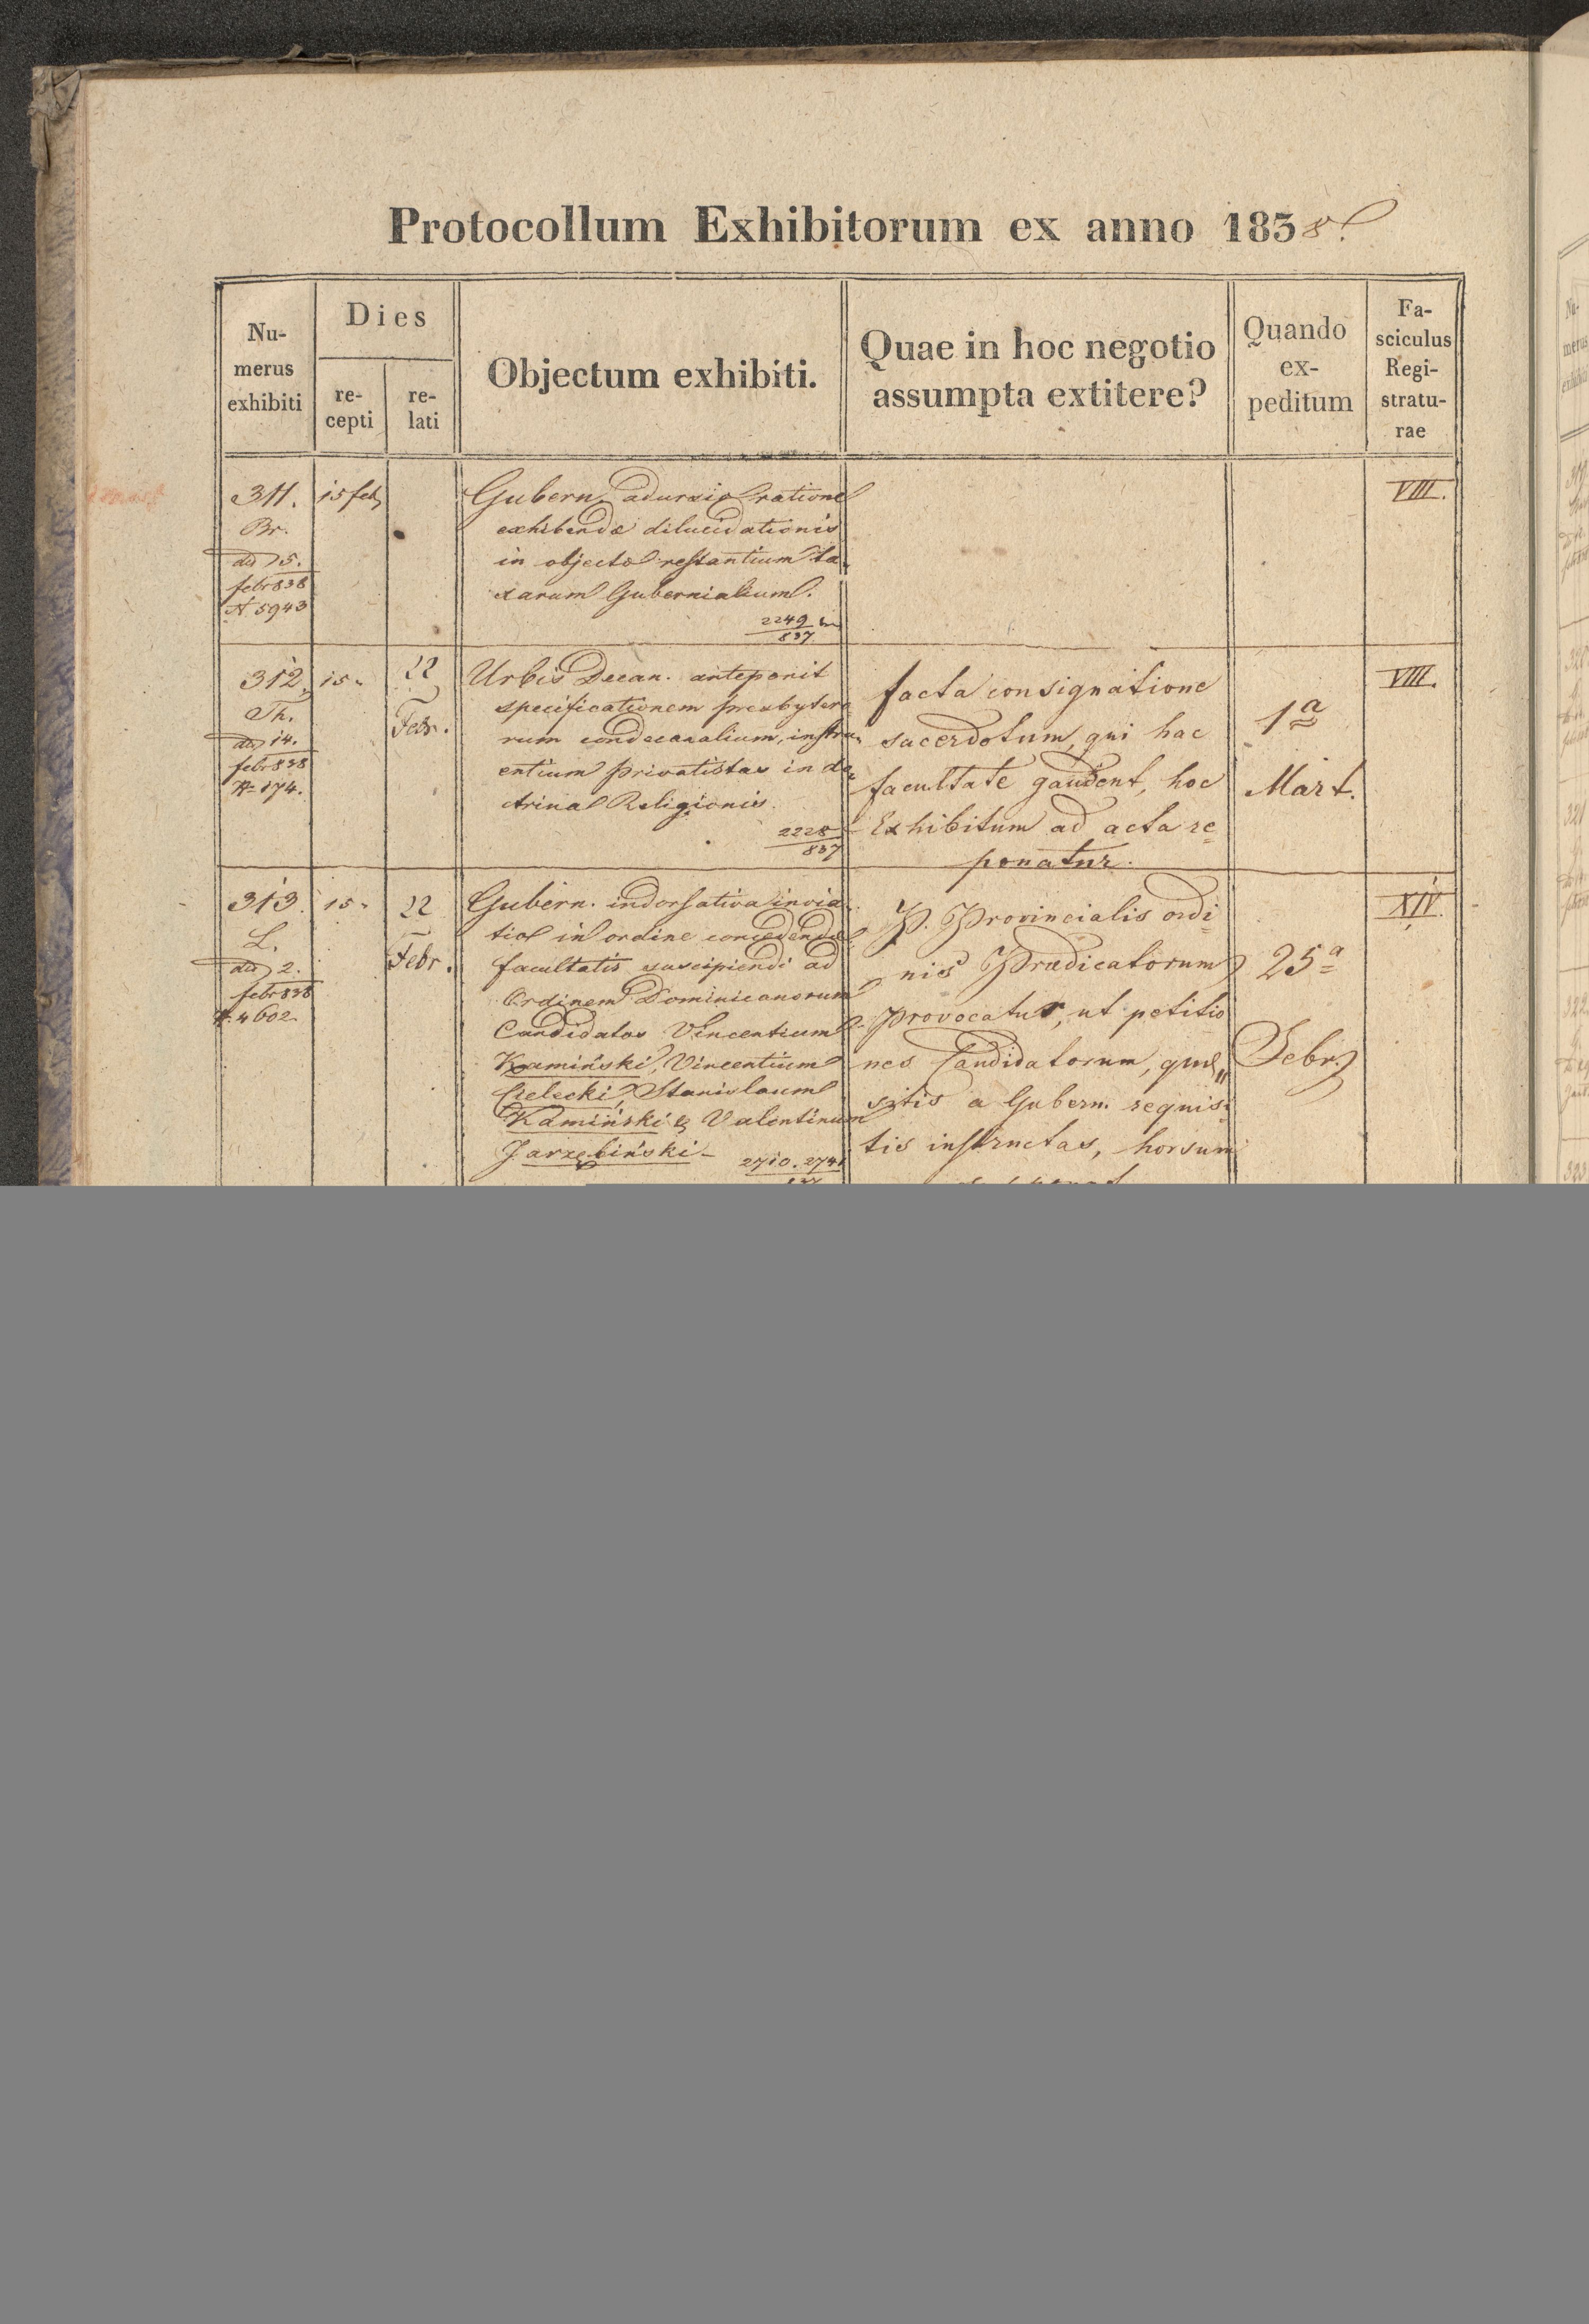 Protocollum Exhibitorum ex anno 1838.
Numerus exhibiti
Dies
recepti
relati
Objectum exhibiti.
Quae in hoc negotio
assumpta extitere?
Quando
ex-
peditum
Fa-
sciculus
Regi-
stratu-
rae
311.
Br.
dd 5.
febr 838
N 5943
15 feb
Gubern. ratione
exhibendæ dilucidationis
in objecto restantium ta-
xarum Gubernialium.
2249
837
VIII.
312.
Th.
dd 14.
febr 838
N 174.
15 "
22
Febr.
Urbis Decan. anteponit
specificationem presbytero
rum condecanalium, instru-
entium privatistas in do-
ctrina Religionis.
2228
837
facta consignatione
sacerdotum, qui hac
facultate gaudent, hoc
Exhibitum ad acta re=
ponatur.
1a
Mart.
VIII.
313.
L.
dd 2.
febr 838
N. 4602.
15 "
22
Febr.
Gubern. indorsativa invia-
tio in ordine concedendæ
facultatis suscipiendi ad
Ordinem Dominicanorum
Candidatos Vincentium
Kamiński, Vincentium
Cielecki, Stanislaum
Kamiński & Valentinum
Jarzębiński -
2710. 2741
837
P. Provincialis ordi=
nis Prædicatorum
provocatur, ut petitio
nes Candidatorum, quæ"
sitis a Gubern. requisi
tis instructas, horsum
25a
Febr.
XIV.